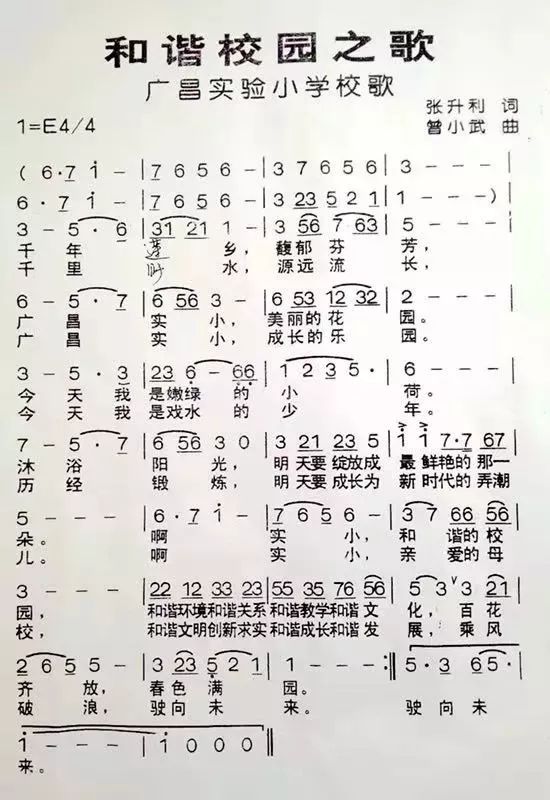 和谐校园之歌
广昌实验小学校歌
张升利 词
1=E4/4
曾小武 曲
( 6·7 i - | 7 6 5 6 - | 3 7 6 5 6 | 3 - - - |
6·7 i - | 7 6 5 6 - | 3 23 5 2 1 | 1 - - - ) |
3 - 5·6 | 31 21 1 - | 3 56 7 63 | 5 - - - |
千年 莲乡, 馥郁芬芳,
千里 盱水, 源远流长,
6 - 5·7 | 6 56 3 - | 6 53 12 32 | 2 - - - |
广昌 实小, 美丽的花园。
广昌 实小, 成长的乐园。
3 - 5·3 | 23 6 - 66 | 1 2 3 5· | 6 - - - |
今天我是嫩绿的小荷。
今天我是戏水的少年。
7 - 5·7 | 6 56 3 0 | 3 21 23 5 | i i 7·7 67 |
沐浴 阳光, 明天要绽放成 最鲜艳的那一
历经 锻炼, 明天要成长为 新时代的弄潮
5 - - - | 6·7 i - | 7 6 5 6 - | 3 7 66 56 |
朵。 啊 实小, 和谐的校
儿。 啊 实小, 亲爱的母
3 - - - | 22 12 33 23 | 55 35 76 56 | 5 3 ∨ 3 21 |
园, 和谐环境和谐关系 和谐教学和谐文 化, 百花
校, 和谐文明创新求实 和谐成长和谐发 展, 乘风
2 6 5 5 - | 3 23 5 2 1 | 1 - - - :‖ 5·3 6 5 |
齐放, 春色满园。
破浪, 驶向未来。 驶向未
i - - - | i 0 0 0 ‖
来。